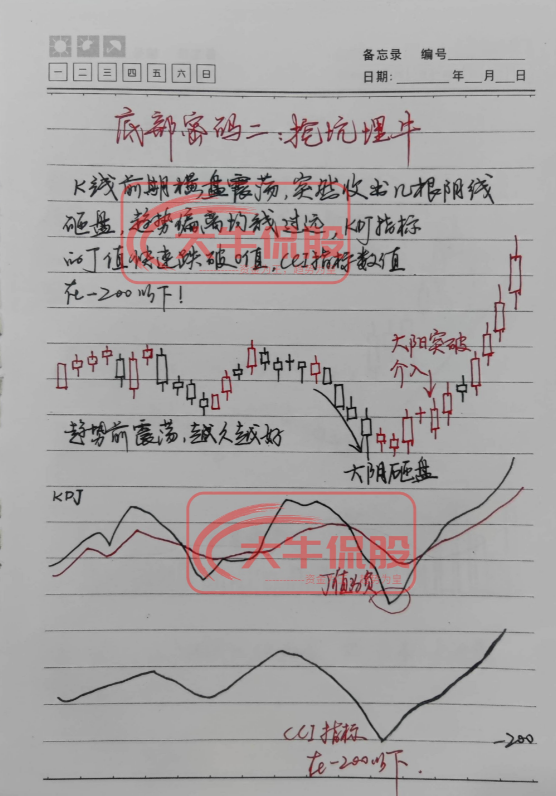 备忘录 编号
一 二 三 四 五 六 日
日期: 年 月 日
底部密码二:挖坑埋牛
K线前期横盘震荡,突然收出几根阴线
砸盘,趋势偏离均线过远,KDJ指标
的J值快速跌破0值,CCI指标数值
在-200以下!
大牛侃股
大阳突破
介入
趋势前震荡,越久越好
大阴砸盘
KDJ
大牛侃股
J值为负
CCI指标
在-200以下.
-200